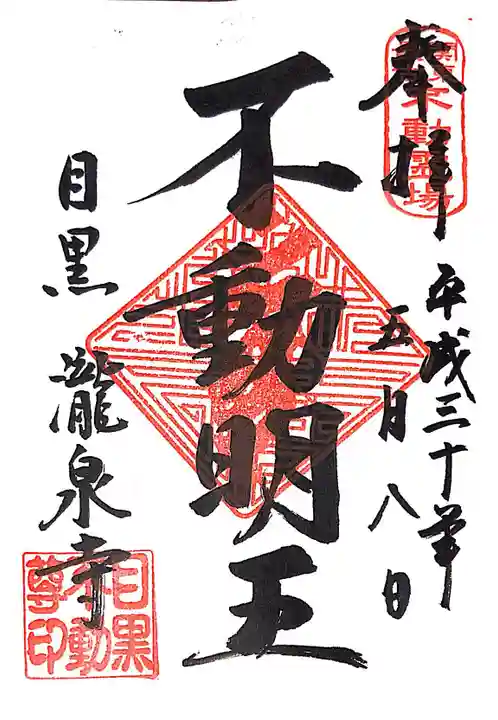 奉拝
関東不動霊場
平成三十年
五月八日
不動明王
目黒 瀧泉寺
目黒
不動
尊印